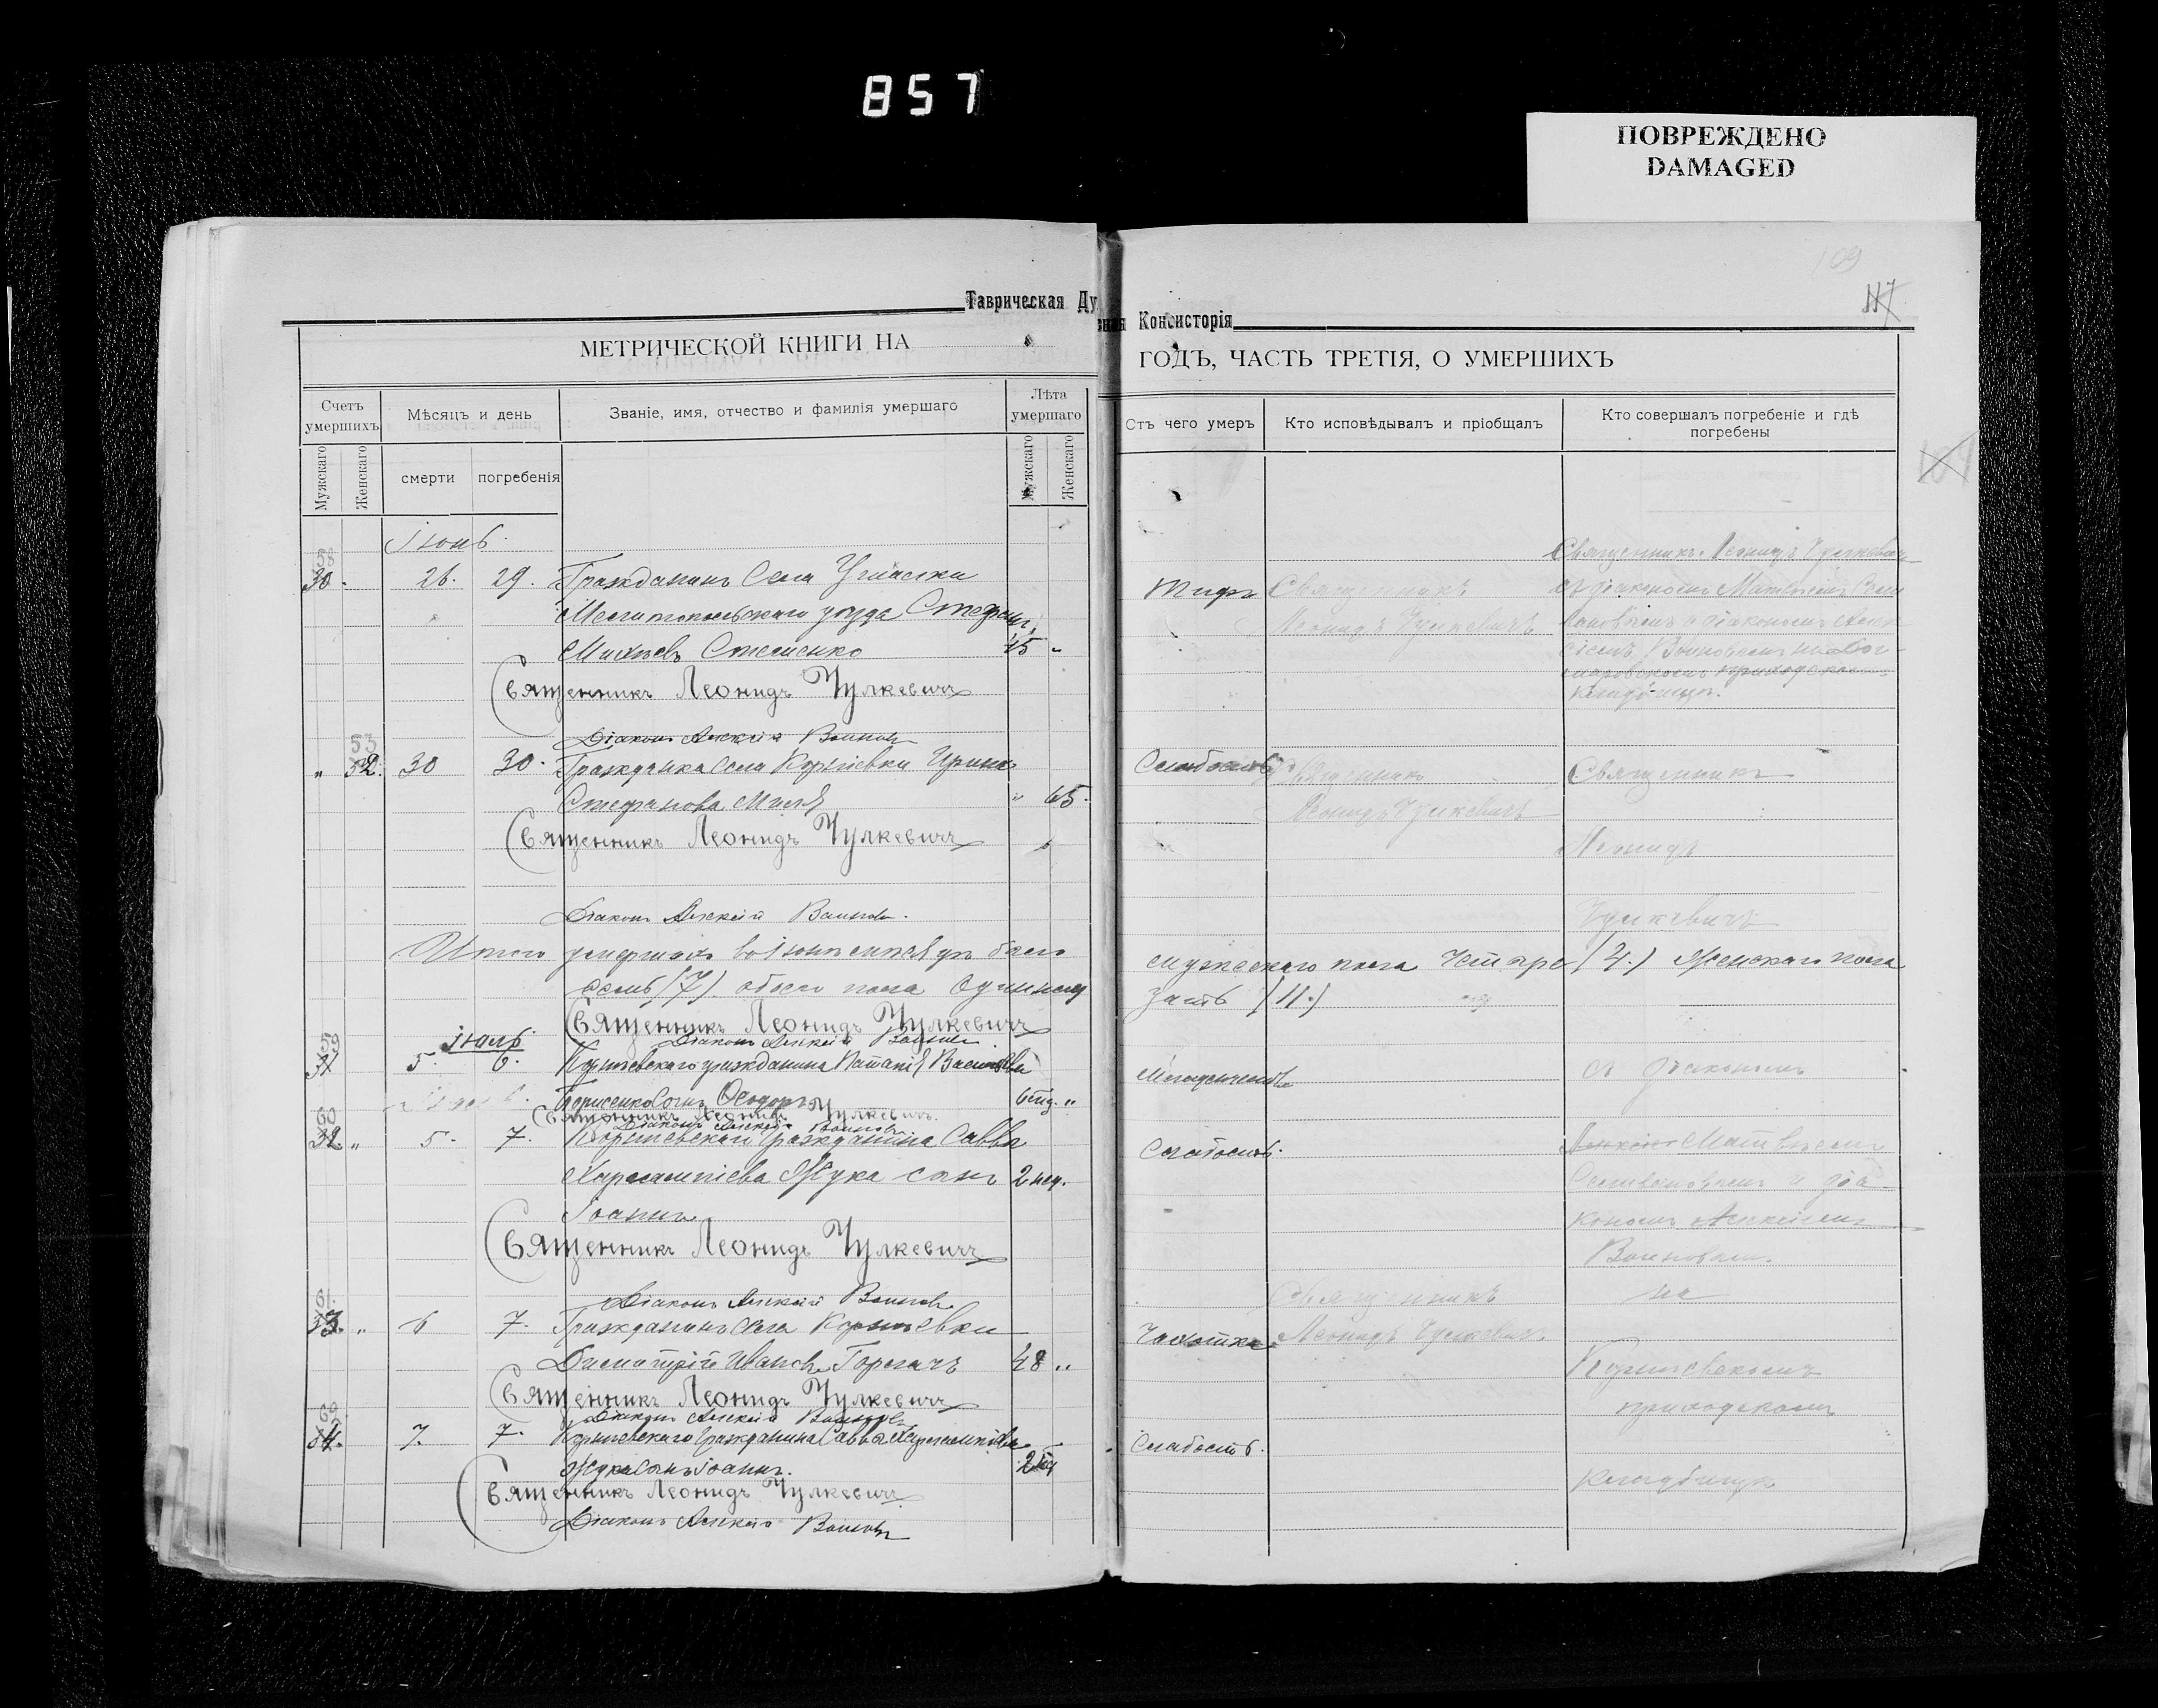 857
ПОВРЕЖДЕНО
DAMAGED
109
117
Таврическая Ду
ная Консисторія
МЕТРИЧЕСКОЙ КНИГИ НА
ГОДЪ, ЧАСТЬ ТРЕТІЯ, О УМЕРШИХЪ
Счетъ умершихъ
Мѣсяцъ и день
Званіе, имя, отчество и фамилія умершаго
Лѣта умершаго
Отъ чего умеръ
Кто исповѣдывалъ и пріобщалъ
Кто совершалъ погребеніе и гдѣ погребены
Мужскаго
Женскаго
смерти
погребенія
Мужскаго
Женскаго
Іюнь
58
30. 26. 29. Гражданинъ села
Мелитопольскаго уѣзда Стефанъ
45 "
Священникъ Леонидъ Чулкевичъ
Діаконъ Алексій Воиновъ
Тифъ
Священникъ
Леонидъ Чулкевичъ
Священникъ Леонидъ Чулкевичъ
кладбищѣ.
53
" 32. 30 30. Гражданка села Корнѣевки Ирина
Стефанова " 65.
Священникъ Леонидъ Чулкевичъ
Діаконъ Алексій Воиновъ.
Слабость
Священникъ
Леонидъ Чулкевичъ
Священникъ
Леонидъ
Чулкевичъ
Итого умершихъ въ іюнѣ мѣсяцѣ было
мужескаго пола четыре (4.) женскаго пола
семь (7). обоего пола одиннад
цать (11.)
Священникъ Леонидъ Чулкевичъ
Діаконъ Алексій Воиновъ
Іюль
59
31 5. 6. Корнѣевскаго гражданина
Борисенко сынъ Ѳеодоръ
Священникъ Леонидъ Чулкевичъ.
Діаконъ Алексій Воиновъ
съ діакономъ
60
32 " 5. 7. Корнѣевскаго гражданина Саввы
Харлампіева Жука сынъ 2 нед.
Іоаннъ
Священникъ Леонидъ Чулкевичъ
Діаконъ Алексій Воиновъ
Слабость.
Матвѣемъ
и діа-
кономъ Алексіемъ
Воиновымъ
на
61.
33. " 6 7. Гражданинъ села Корнѣевки
Димитрій Ивановъ 48 "
Священникъ Леонидъ Чулкевичъ
Діаконъ Алексій Воиновъ
Чахотка
Священникъ
Леонидъ Чулкевичъ
Корнѣевскомъ
приходскомъ
кладбищѣ
34. 7. 7. Корнѣевскаго гражданина Саввы Харлампіева
Жука сынъ Іоаннъ.
Священникъ Леонидъ Чулкевичъ
Діаконъ Алексій Воиновъ
Слабость.